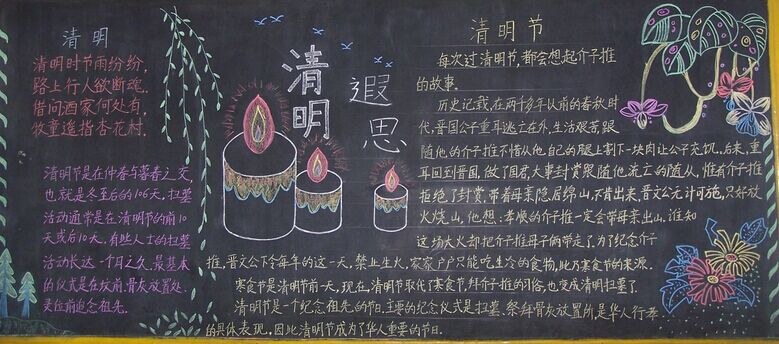 清明
清明时节雨纷纷,
路上行人欲断魂.
借问酒家何处有,
牧童遥指杏花村.
清明节是在仲春与暮春之交,
也就是冬至后的106天,扫墓
活动通常是在清明节的前10
天或后10天.有些人士的扫墓
活动长达一个月之久.最基本
的仪式是在坟前、骨灰放置处、
灵位前追念祖先.
清明
遐思
清明节
每次过清明节,都会想起介子推
的故事.
历史记载,在两千多年以前的春秋时
代,晋国公子重耳逃亡在外,生活艰苦,跟
随他的介子推不惜从他自己的腿上割下一块肉让公子充饥.后来,重
耳回到晋国,做了国君,大事封赏所有随他流亡的随从,惟有介子推
拒绝了封赏,带着母亲隐居绵山,不肯出来,晋文公无计可施,只好放
火烧山,他想:孝顺的介子推一定会带母亲出山.谁知
这场大火却把介子推母子俩带走了,为了纪念介子
推,晋文公下令每年的这一天,禁止生火,家家户户只能吃生冷的食物,此乃寒食节的来源.
寒食节是清明节前一天,现在,清明节取代了寒食节,拜介子推的习俗,也变成清明扫墓了
清明节是一个纪念祖先的节日.主要的纪念仪式是扫墓.祭拜骨灰放置所,是华人行孝
的具体表现,因此清明节成为了华人重要的节日.